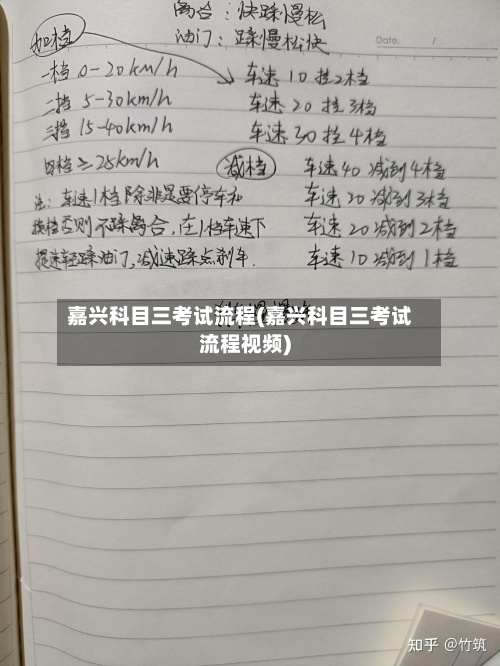 离合：快踩慢松
油门：踩慢松快
Date.      /
加档
一档 0-20km/h
车速 10 挂2档
二挡 5-30km/h
车速 20 挂3档
三挡 15-40km/h
车速 30 挂4档
四档 ≥25km/h
减档
车速 40 减到4档
注：车速1档除非是要停车和
车速 30 减到3档
换档否则不踩离合，在1档车速下
车速 20 减到2档
提速轻踩油门，减速踩点刹车.
车速 10 减到1档
嘉兴科目三考试流程(嘉兴科目三考试
流程视频)
知乎 @竹筑